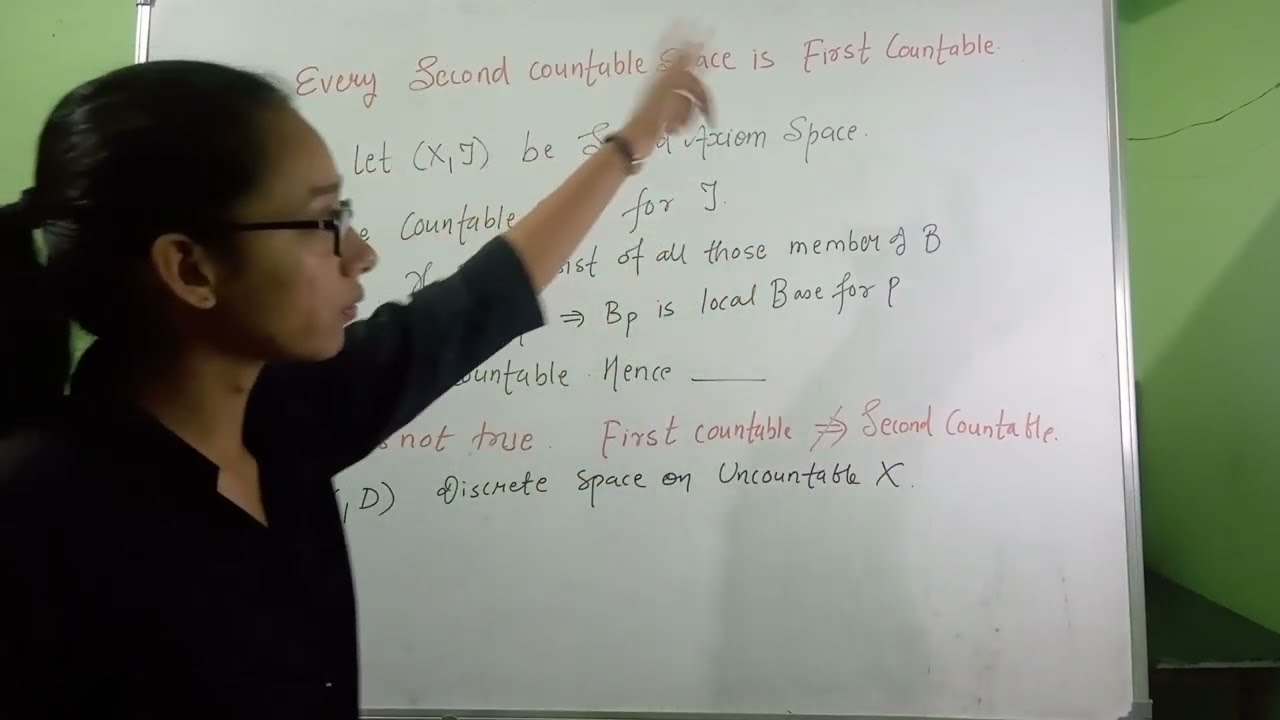 Every Second countable Space is First Countable.
let (X, J) be Axiom Space.
Countable for J.
of all those member of B
⇒ Bp is local Base for p
countable. Hence ____
not true. First countable ⇏ Second Countable.
, D) Discrete space on Uncountable X.